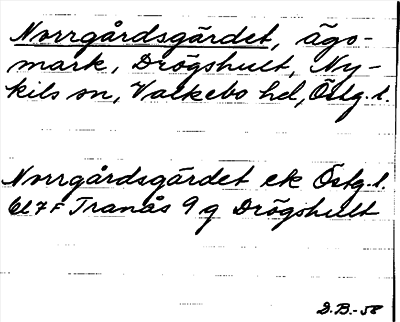 Norrgårdsgärdet, ägo-
mark, Drögshult, Ny-
kils sn, Valkebo hd, Östg. l.
Norrgårdsgärdet ek Östg. l.
Bl 7 F Tranås 9 g Drögshult
D.B.-58